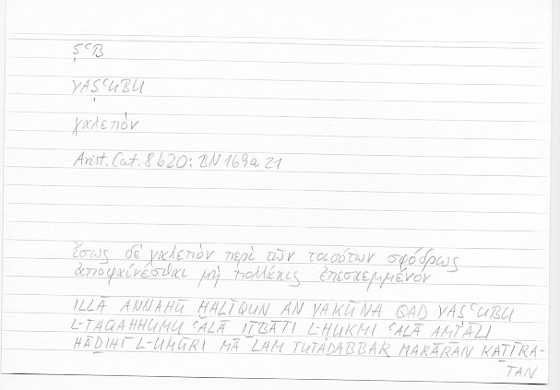 ṢʿB
YAṢʿUBU
χαλεπόν
Arist. Cat. 8b20: BN 169a21
ἴσως δὲ χαλεπὸν περὶ τῶν τοιούτων σφόδρως
ἀποφαίνεσθαι μὴ πολλάκις ἐπεσκεμμένον
ILLĀ ANNAHŪ ḪALĪQUN AN YAKŪNA QAD YAṢʿUBU
L-TAQAḤḤUMU ʿALĀ IṮBĀTI L-ḤUKMI ʿALĀ AMṮĀLI
HĀḎIHĪ L-UMŪRI MĀ LAM TUTADABBAR MARĀRAN KAṮĪRA-
TAN